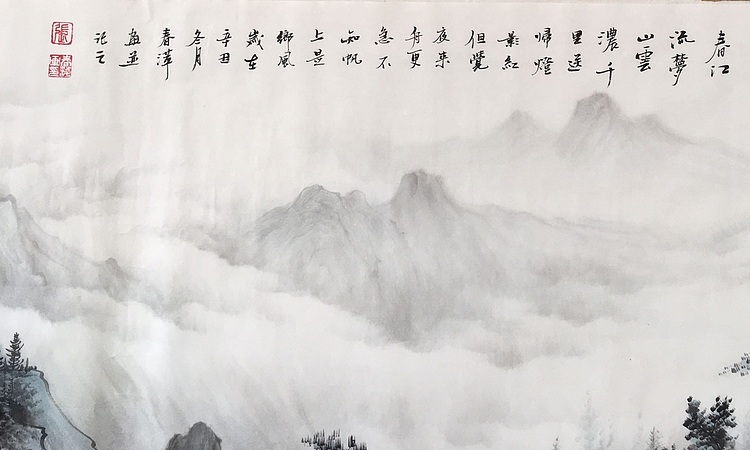 春江
流夢
山雲
濃千
里送
歸燈
影紅
但覺
夜来
舟更
急不
知帆
上是
鄉風
歲在
辛丑
冬月
春萍
畫並
記之
張